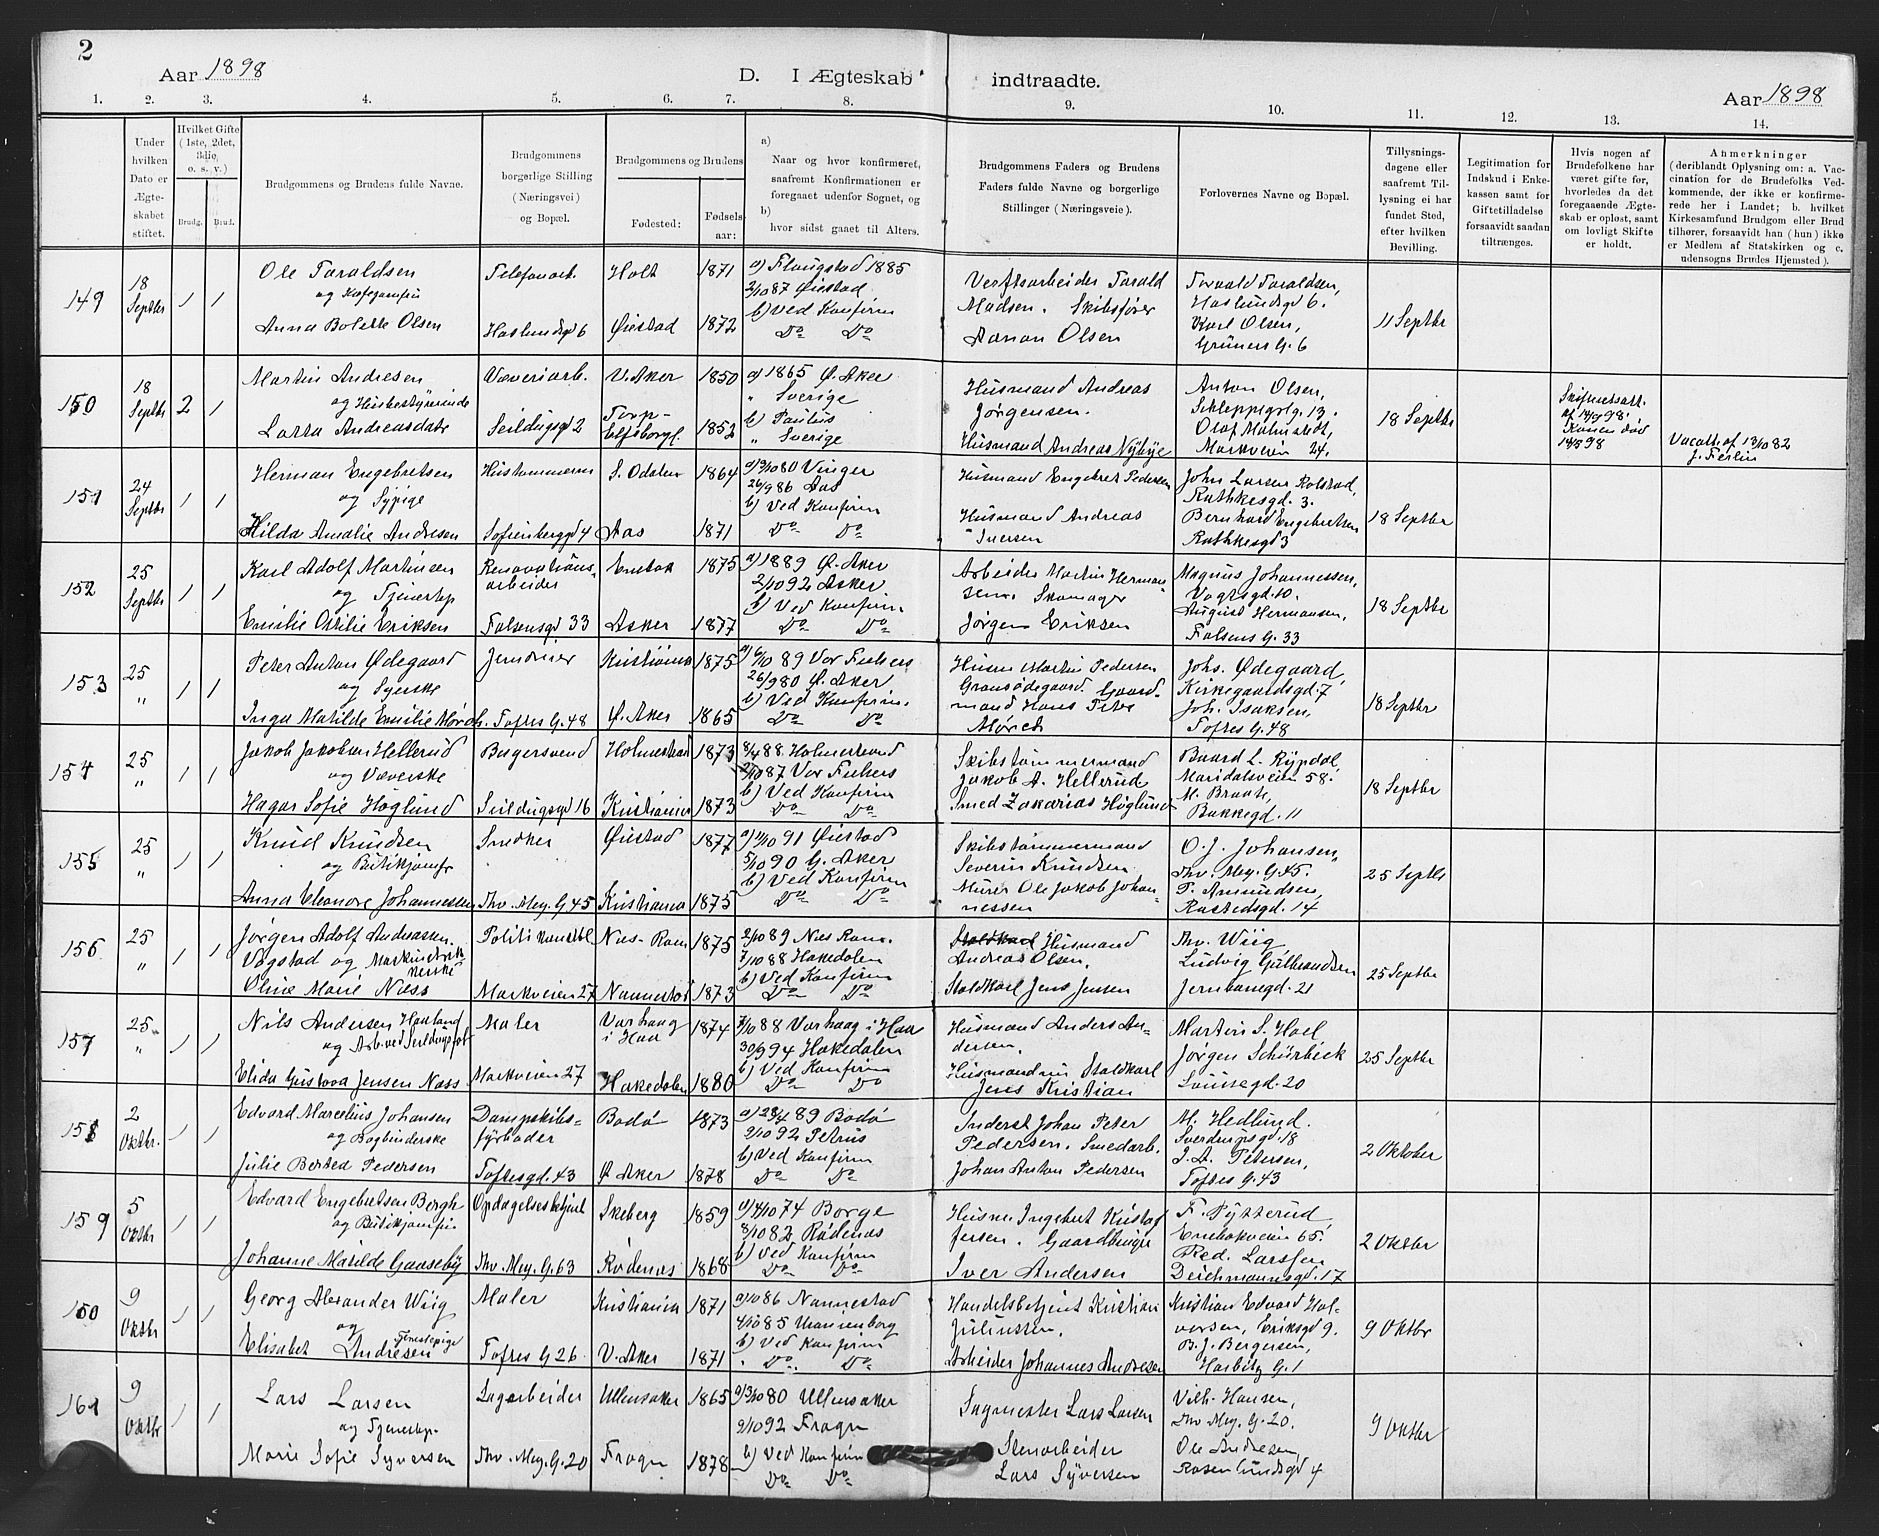 2
Aar 1898
D. I Ægteskab indtraadte.
Aar 1898
1. 2. 3. 4. 5. 6. 7. 8. 9. 10. 11. 12. 13. 14.
Under hvilken Dato er Ægte- skabet stiftet.
Hvilket Gifte (1ste, 2det, 3die, o. s. v.)
Brudg. Brud.
Brudgommens og Brudens fulde Navne.
Brudgommens borgerlige Stilling (Næringsvei) og Bopæl.
Brudgommens og Brudens
Fødested: Fødsels- aar:
a) Naar og hvor konfirmeret, saafremt Konfirmationen er foregaaet udenfor Sognet, og
b) hvor sidst gaaet til Alters.
Brudgommens Faders og Brudens Faders fulde Navne og borgerlige Stillinger (Næringsveie).
Forlovernes Navne og Bopæl.
Tillysnings- dagene eller saafremt Til- lysning ei har fundet Sted, efter hvilken Bevilling.
Legitimation for Indskud i Enke- kassen samt for Giftetilladelse forsaavidt saadan tiltrænges.
Hvis nogen af Brudefolkene har været gifte før, hvorledes da det foregaaende Ægte- skab er opløst, samt om lovligt Skifte er holdt.
Anmerkninger (deriblandt Oplysning om: a. Vac- cination for de Brudefolks Ved- kommende, der ikke er konfirme- rede her i Landet; b. hvilket Kirkesamfund Brudgom eller Brud tilhører, forsaavidt han (hun) ikke er Medlem af Statskirken og c. udensogns Brudes Hjemsted).
149
18 Septbr
1 1
Ole Taraldsen
og
Anna Bolette Olsen
Telefonarb.
Haslundsgd 6
Holt 1871
Øiestad 1872
a) Flaugstad 1885
2/10 87 Øiestad
b) Ved Konfirm
Do Do
Verftsarbeider Tarald
Madsen. Skibsfører
Aanon Olsen
Torvald Taraldsen,
Haslundsgd 6.
Karl Olsen,
Grüners G. 6
11 Septbr
150
18 Septbr
2 1
Martin Andresen
og Husbestyrerinde
Lotta Andreasdatr
Væveriarb.
Seildugsgd 2
V. Aker 1850
Torp- Elfsborgl. 1852
a) 1865 Ø. Aker
" Sverige
b) Paulus
" Sverige
Husmand Andreas
Jørgensen.
Husmand Andreas Nybye
Anton Olsen,
Schleppegrlg. 13.
Olaf Malmstedt,
Markveien 24.
18 Septbr
Skifteattest.
af 14/9 98.
Konen død
14/5 98
Vacatt. af 13/10 82
J. Ferlin
151
24 Septbr
1 1
Herman Engebretsen
og Sypige
Hilda Amalie Andresen
Hustømmerm
Sofienberggd 4
S. Odalen 1864
Aas 1871
a) 3/10 80 Vinger
26/9 86 Aas
b) Ved Konfirm
Do Do
Husmand Engebret Pedersen
Husmand Andreas
Iversen
John Larsen Rolstad,
Rathkesgd. 3.
Bernhard Engebretsen
Rathkesgd 3
18 Septbr
152
25 Septbr
1 1
Karl Adolf Martinsen
og Tjenestep
Emilie Otilie Eriksen
Renovations-
arbeider
Falsensgd 33
Enebak 1875
Asker 1877
a) 1889 Ø. Aker
2/10 92 Asker
b) Ved Konfirm.
Do Do
Arbeider Martin Herman
sen. Skomager
Jørgen Eriksen
Magnus Johannessen,
Vogtsgd. 10.
August Hermansen,
Falsens G. 33
18 Septbr
153
25 "
1 1
Peter Anton Ødegaard
og Syerske
Inga Matilde Emilie Mørch.
Jerndreier
Toftes G. 48
Kristiania 1875
Ø. Aker 1865
a) 6/10 89 Vor Frelsers
26/9 80 Ø. Aker
b) Ved Konfirm.
Do Do
Husm Martin Pedersen
Gransødegaard. Gaard-
mand Hans Peter
Mørch
Johs. Ødegaard,
Kirkegaardsgd. 7
Joh. Isaksen,
Toftes G. 48
18 Septbr
154
25 "
1 1
Jakob Jakobsen Hellerud
og Væverske
Hagar Sofie Høglund
Bagersvend
Seildugsgd 16
Holmestrand 1873
Kristiania 1873
8/4 88 Holmestrand
2/10 87 Vor Frelsers
b) Ved Konfirm
Do Do
Skibstømmermand
Jakob A. Hellerud
Smed Zakarias Høglund
Baard L. Rypdal,
Maridalsveien 58.
M. Braate,
Bakkegd. 11
18 Septbr
155
25 "
1 1
Knud Knudsen
og Butikjomfr
Anna Eleonore Johannessen
Snedker
Thv. Mey. G. 45
Øiestad 1877
Kristiania 1875
a) 11/10 91 Øiestad
5/10 90 G. Aker
b) Ved Konfirm
Do Do
Skibstømmermand
Severin Knudsen
Murer Ole Jakob Johan
nessen
O. J. Johansen,
Thv. Mey. G. 45.
P. Amundsen,
Rostedsgd. 14
25 Septbr
156
25 "
1 1
Jørgen Adolf Andreassen
Vogstad og
Oline Marie Næss
Politikonstbl
Markveien 27
Næs - Rom 1875
Nannestad 1873
2/10 89 Næs Rom.
7/10 88 Hakedalen
b) Ved Konfirm
Do Do
Husmand
Andreas Olsen,
Staldkarl Jens Jensen
Thv. Wiig,
Ludvig Gulbrandsen
Jernbanegd. 21
25 Septbr
157
25 "
1 1
Nils Andersen Haaland
og Arb. ved Seildugsfab
Elida Gustava Jensen Næss
Maler
Markveien 27
Varhaug
i Haa 1874
Hakedalen 1880
7/10 88 Varhaug i Haa
30/9 94 Hakedalen
b) Ved Konfirm
Do Do
Husmand Anders An-
dersen,
Husmand nu Staldkarl
Jens Kristian
Martin S. Hoel
Jørgen Schürbeck
Louisegd. 20
25 Septbr
158
2 Oktbr.
1 1
Edvard Marcelius Johansen
og Bogbinderske
Julie Berted Pedersen
Dampskibs-
fyrbøder
Toftesgd. 43
Bodø 1873
Ø Aker 1878
a) 28/4 89 Bodø
9/10 92 Petrus
b) Ved Konfirm
Do Do
Inderst Johan Peter
Pedersen. Smedarb.
Johan Anton Pedersen
M. Hedlund.
Sverdrupsgd. 18
J. A. Petersen,
Toftes G. 43
2 Oktober
159
5 Oktbr
1 1
Edvard Engebretsen Bergh
og Butikjomfru
Johanne Matilde Gaaseby
Opdagelsesbetjent
Thv. Mey. G. 63
Skeberg 1859
Rødenæs 1868
a) 4/10 74 Borge
8/10 82 Rødenæs
b) Ved Konfirm
Do Do
Husm. Ingebret Kristof
fersen. Gaardbruger
Iver Andersen
F. Pytterud,
Enebakveien 65.
Fred. Larssen
Deichmannsgd. 17
2 Oktbr
160
9 Oktbr
1 1
Georg Alexander Wiig
og Tjenestepige
Elisabet Andresen
Maler
Toftes G 26
Kristiania 1871
V. Aker 1871
a) /10 86 Nannestad
4/10 85 Uranienborg
b) Ved Konfirm
Do Do
Handelsbetjent Kristian
Juliussen,
Arbeider Johannes Andresen
Kristian Edvard Hal-
vorsen, Eriksgd 9.
B. J. Bergersen,
Harbitz G. 1
9 Oktbr
161
9 Oktbr
1 1
Lars Larsen
og Tjenestep.
Marie Sofie Syversen
Sagarbeider
Thv. Mey. G. 20
Ullensaker 1865
Frogn 1878
a) 3/10 80 Ullensaker
9/10 92 Frogn
b) Ved Konfirm
Do Do
Sagmester Lars Larsen
Stenarbeider
Lars Syversen
Vilh. Hansen,
Thv. Mey. G. 20.
Ole Andresen,
Rosenlundsgd 4
9 Oktbr